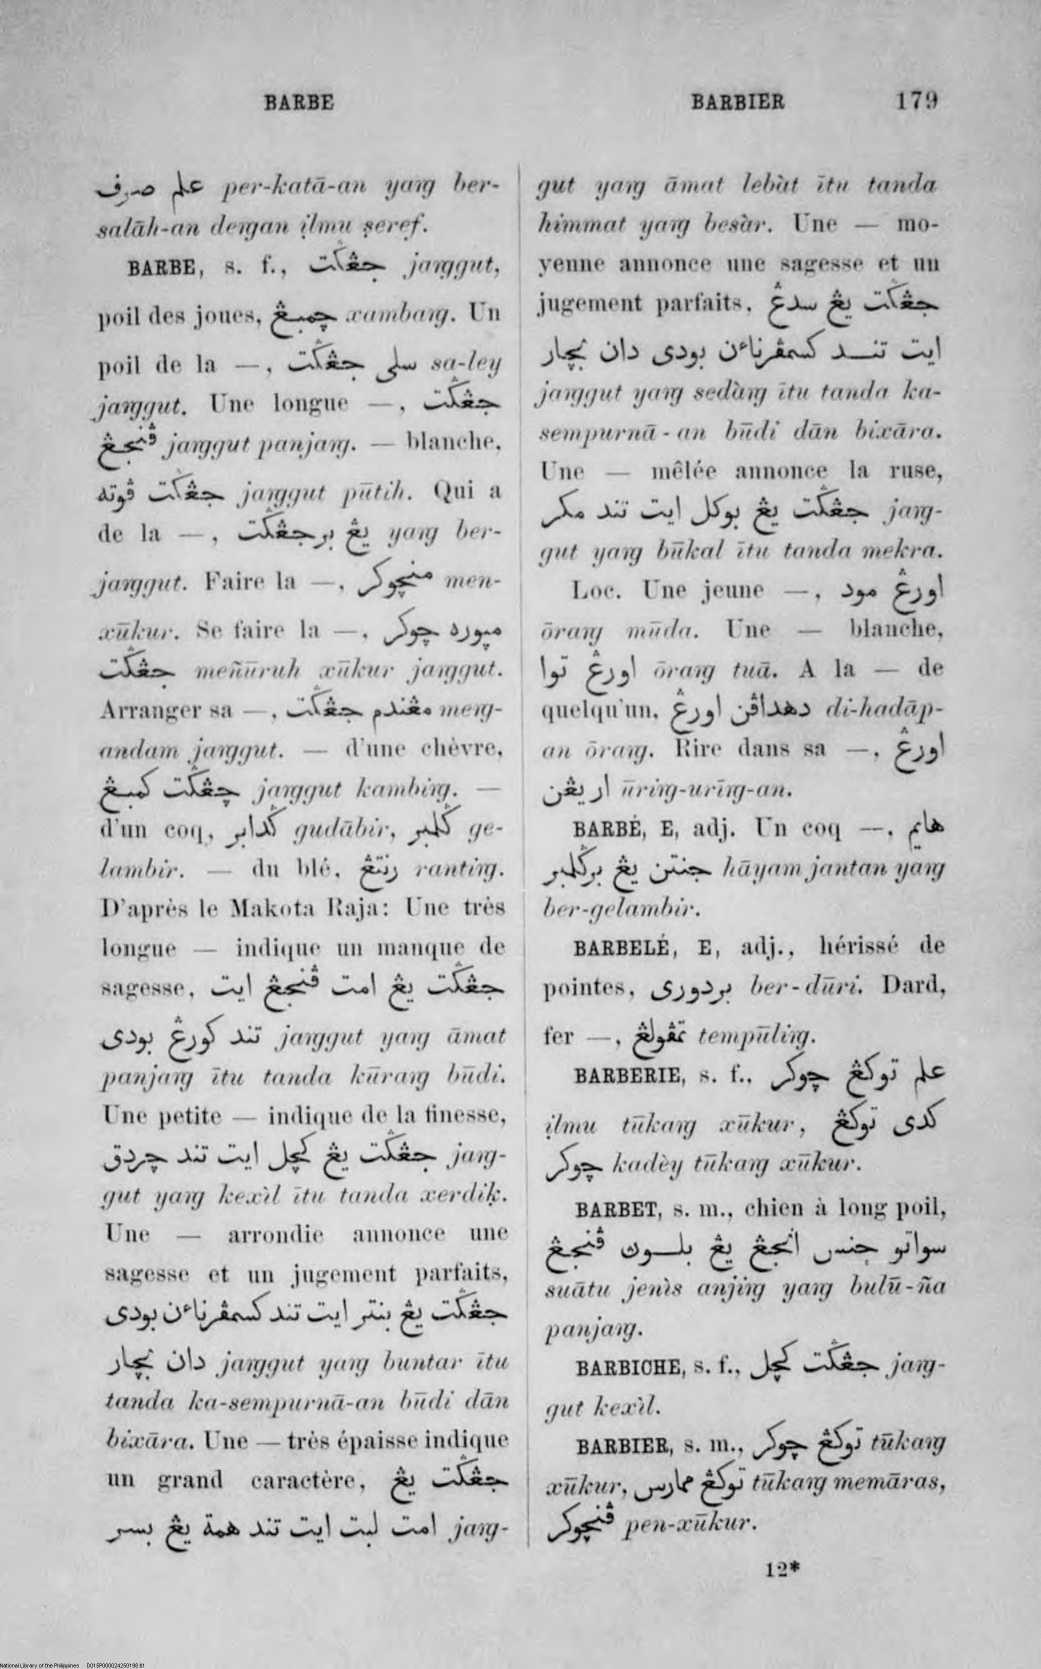 BARBE
BARBIER 179
علم صرف per-katā-an yaṙg ber-
salāh-an deṙgan ịlmu ṣeref.
BARBE, s. f., جڠݢت jaṙggut,
poil des joues, چمبڠ xambaṙg. Un
poil de la —, سلي جڠݢت sa-ley
jaṙggut. Une longue —, جڠݢت
ڤنجڠ jaṙggut panjaṙg. — blanche,
جڠݢت ڤوته jaṙggut pūtih. Qui a
de la —, يڠ برجڠݢت yaṙg ber-
jaṙggut. Faire la —, منچوكر men-
xūkur. Se faire la —, ميوره چوكر
جڠݢت meñūruh xūkur jaṙggut.
Arranger sa —, مڠندم جڠݢت meṙg-
andam jaṙggut. — d'une chèvre,
چڠݢت كمبڠ jaṙggut kambiṙg. —
d'un coq, ݢدابر gudābir, ݢلمبر ge-
lambir. — du blé, رنتڠ rantiṙg.
D'après le Makota Raja: Une très
longue — indique un manque de
sagesse, جڠݢت يڠ امت ڤنجڠ ايت
تند كورڠ بودى jaṙggut yaṙg āmat
panjaṙg ītu tanda kūraṙg būdi.
Une petite — indique de la finesse,
جڠݢت يڠ كچل ايت تند چردق jaṙg-
gut yaṙg kexìl ītu tanda xerdiḳ.
Une — arrondie annonce une
sagesse et un jugement parfaits,
جڠݢت يڠ بنتر ايت تند كسمڤرناءن بودى
دان بچار jaṙggut yaṙg buntar ītu
tanda ka-sempurnā-an būdi dān
bixāra. Une — très épaisse indique
un grand caractère, جڠݢت يڠ
امت لبت ايت تند همة يڠ بسر jaṙg-
gut yaṙg āmat lebàt ītu tanda
himmat yaṙg besàr. Une — mo-
yenne annonce une sagesse et un
jugement parfaits, جڠݢت يڠ سدڠ
ايت تند كسمڤرناءن بودى دان بچار
jaṙggut yaṙg sedàṙg ītu tanda ka-
sempurnā-an būdi dān bixāra.
Une — mêlée annonce la ruse,
جڠݢت يڠ بوكل ايت تند مكر jaṙg-
gut yaṙg būkal ītu tanda mekra.
Loc. Une jeune —, اورڠ مود
ōraṙg mūda. Une — blanche,
اورڠ توا ōraṙg tuā. A la — de
quelqu'un, دهداڤن اورڠ di-hadāp-
an ōraṙg. Rire dans sa —, اورڠ
اريڠن ūriṙg-urīṙg-an.
BARBÉ, E, adj. Un coq —, هايم
جنتن يڠ برݢلمبر hāyam jantan yaṙg
ber-gelambir.
BARBELÉ, E, adj., hérissé de
pointes, بردورى ber-dūri. Dard,
fer —, تمڤولڠ tempūliṙg.
BARBERIE, s. f., علم توكڠ چوكر
ịlmu tūkaṙg xūkur, كدى توكڠ
چوكر kadèy tūkaṙg xūkur.
BARBET, s. m., chien à long poil,
سواتو جنس انجڠ يڠ بلون ڤنجڠ
suātu jenìs anjiṙg yaṙg bulū-ña
panjaṙg.
BARBICHE, s. f., جڠݢت كچل jaṙg-
gut kexìl.
BARBIER, s. m., توكڠ چوكر tūkaṙg
xūkur, توكڠ ممارس tūkaṙg memāras,
ڤنچوكر pen-xūkur.
12*
National Library of the Philippines